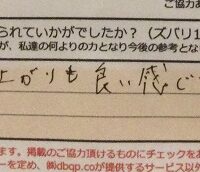 ご協力あ
られていかがでしたか？（ズバリ1
が、私達の何よりの力となり今後の参考とな
上がりも良い感じ
ます。掲載のご協力頂けるものにチェックをお
ーを定め、㈱dbqp.coが提供するサービス以外